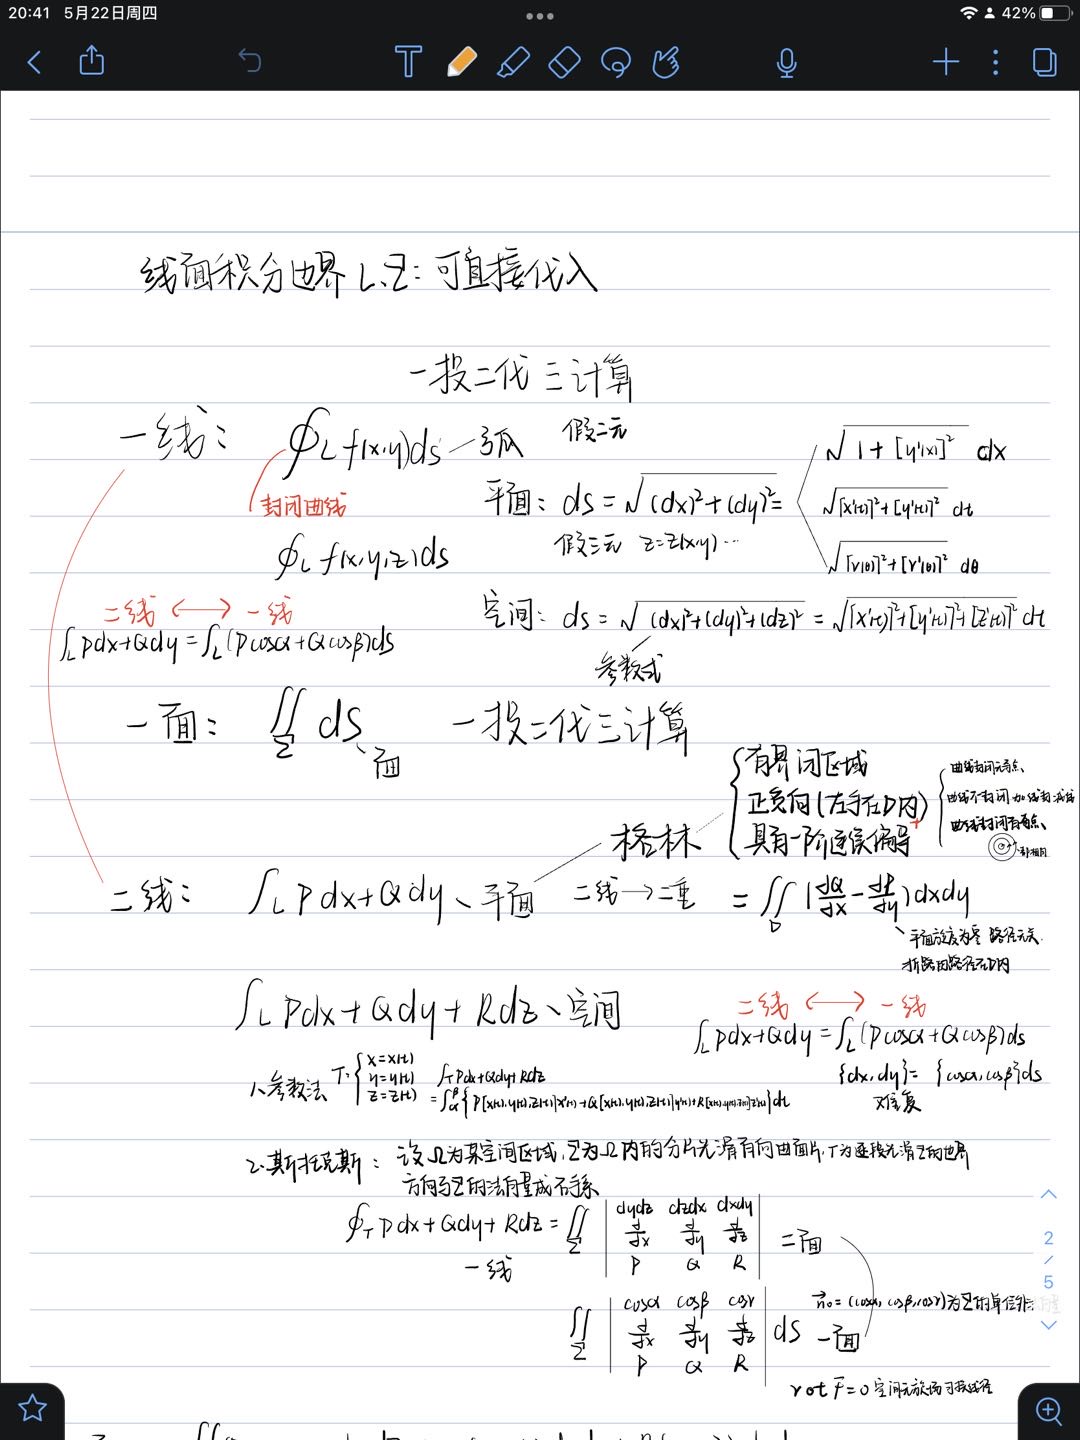 20:41 5月22日周四
42%
线面积分边界 L、Σ：可直接代入
一投二代 三计算
一线： ∮L f(x,y)ds 一弧 假二元
封闭曲线
平面： ds = √(dx)²+(dy)² =
√1+[y'(x)]² dx
√[x'(t)]²+[y'(t)]² dt
√[r(θ)]²+[r'(θ)]² dθ
∮L f(x,y,z)ds
假三元 z=z(x,y)…
空间： ds = √(dx)²+(dy)²+(dz)² = √[x'(t)]²+[y'(t)]²+[z'(t)]² dt
参数式
二线 ⟷ 一线
∫L Pdx+Qdy = ∫L (Pcosα+Qcosβ)ds
一面： ∬Σ dS 一投二代三计算
面
格林
有界闭区域
正负向(左手在D内)
具有一阶连续偏导
曲线封闭无奇点、
曲线不封闭 加线封 减线
曲线封闭有奇点、
二线： ∫L Pdx+Qdy、平面 二线→二重 = ∬D (∂Q/∂x − ∂P/∂y)dxdy
平面旋度为零 路径无关
折路的路径在D内
∫L Pdx+Qdy+Rdz、空间
二线 ⟷ 一线
∫L Pdx+Qdy = ∫L (Pcosα+Qcosβ)ds
{dx,dy} = {cosα,cosβ}ds
1、参数法 Γ: x=x(t)
y=y(t)
z=z(t)
∫Γ Pdx+Qdy+Rdz
= ∫αβ {P[x(t),y(t),z(t)]x'(t)+Q[x(t),y(t),z(t)]y'(t)+R[x(t),y(t),z(t)]z'(t)}dt
2、斯托克斯： 设Ω为某空间区域，Σ为Ω内的分片光滑有向曲面片，Γ为逐段光滑Σ的边界
方向与Σ的法向量成右手系
∮Γ Pdx+Qdy+Rdz = ∬Σ
dydz dzdx dxdy
∂/∂x ∂/∂y ∂/∂z
P Q R
二面
一线
∬Σ
cosα cosβ cosγ
∂/∂x ∂/∂y ∂/∂z
P Q R
dS 一面
n₀=(cosα,cosβ,cosγ)为Σ的单位法向量
rot F=0 空间无旋场可换路径
2
/
5